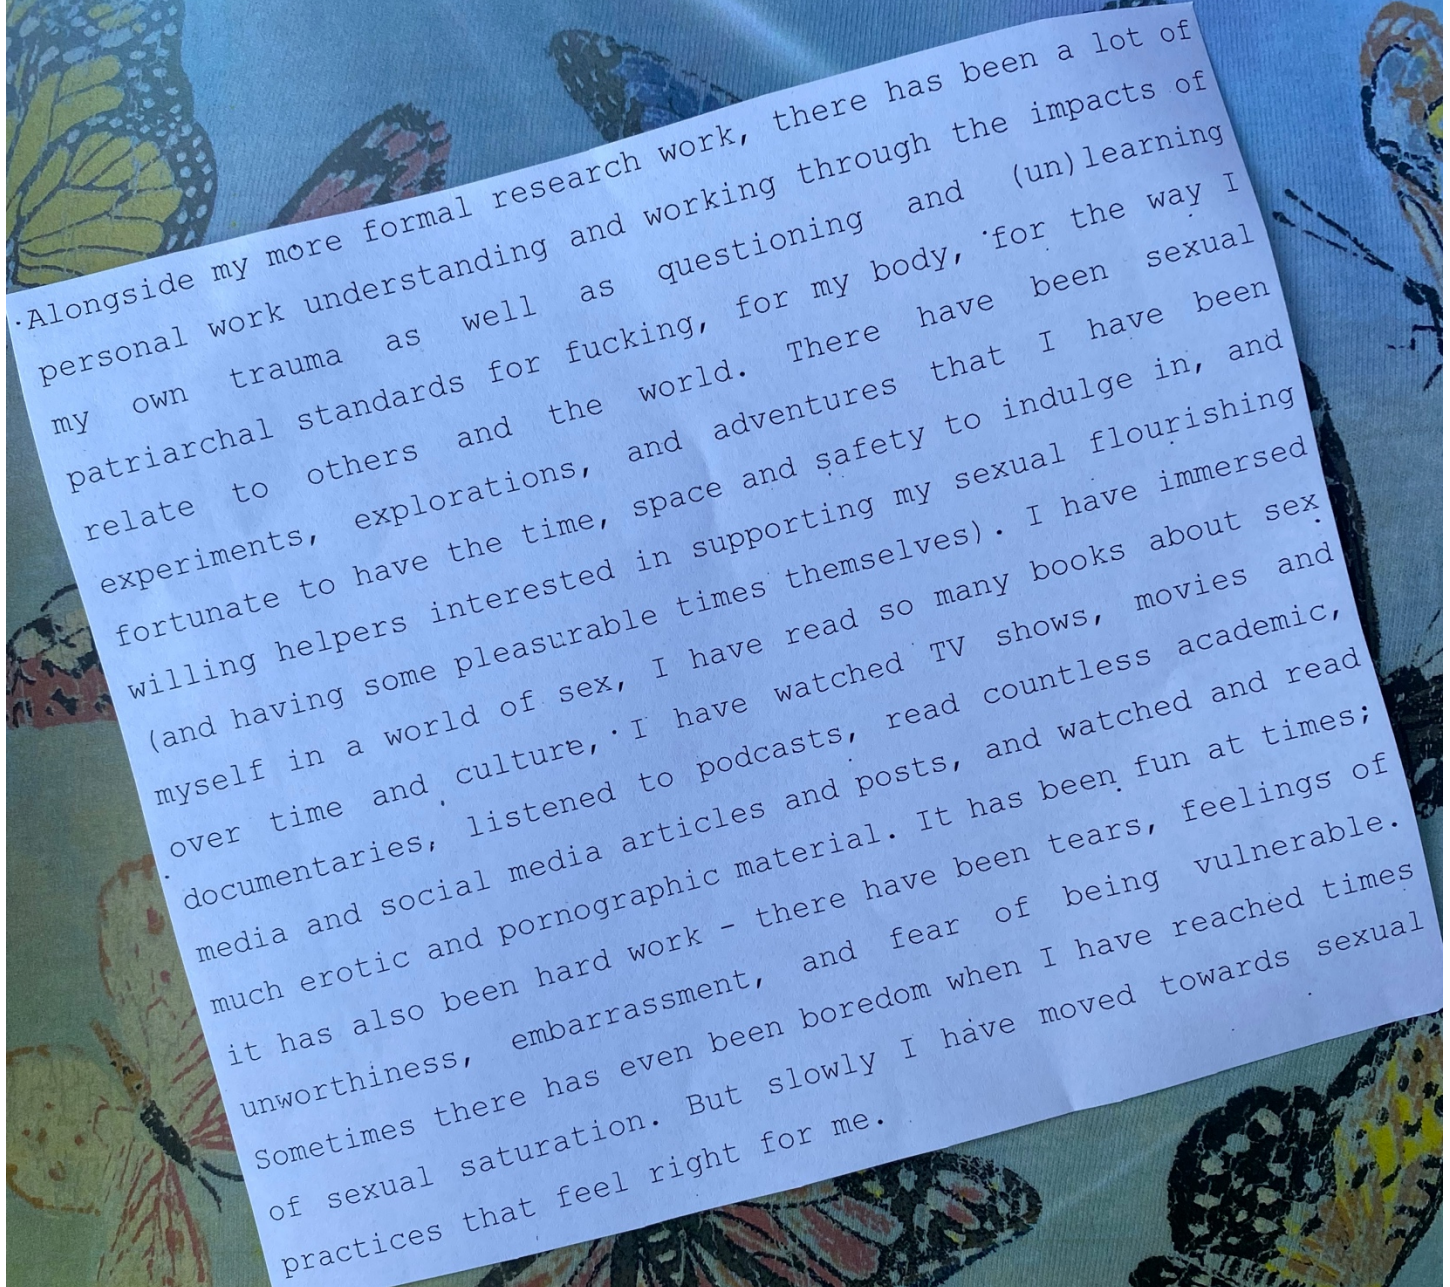 Alongside my more formal research work, there has been a lot of
personal work understanding and working through the impacts of
my own trauma as well as questioning and (un)learning
patriarchal standards for fucking, for my body, for the way I
relate to others and the world. There have been sexual
experiments, explorations, and adventures that I have been
fortunate to have the time, space and safety to indulge in, and
willing helpers interested in supporting my sexual flourishing
(and having some pleasurable times themselves). I have immersed
myself in a world of sex, I have read so many books about sex
over time and culture, I have watched TV shows, movies and
documentaries, listened to podcasts, read countless academic,
media and social media articles and posts, and watched and read
much erotic and pornographic material. It has been fun at times;
it has also been hard work - there have been tears, feelings of
unworthiness, embarrassment, and fear of being vulnerable.
Sometimes there has even been boredom when I have reached times
of sexual saturation. But slowly I have moved towards sexual
practices that feel right for me.